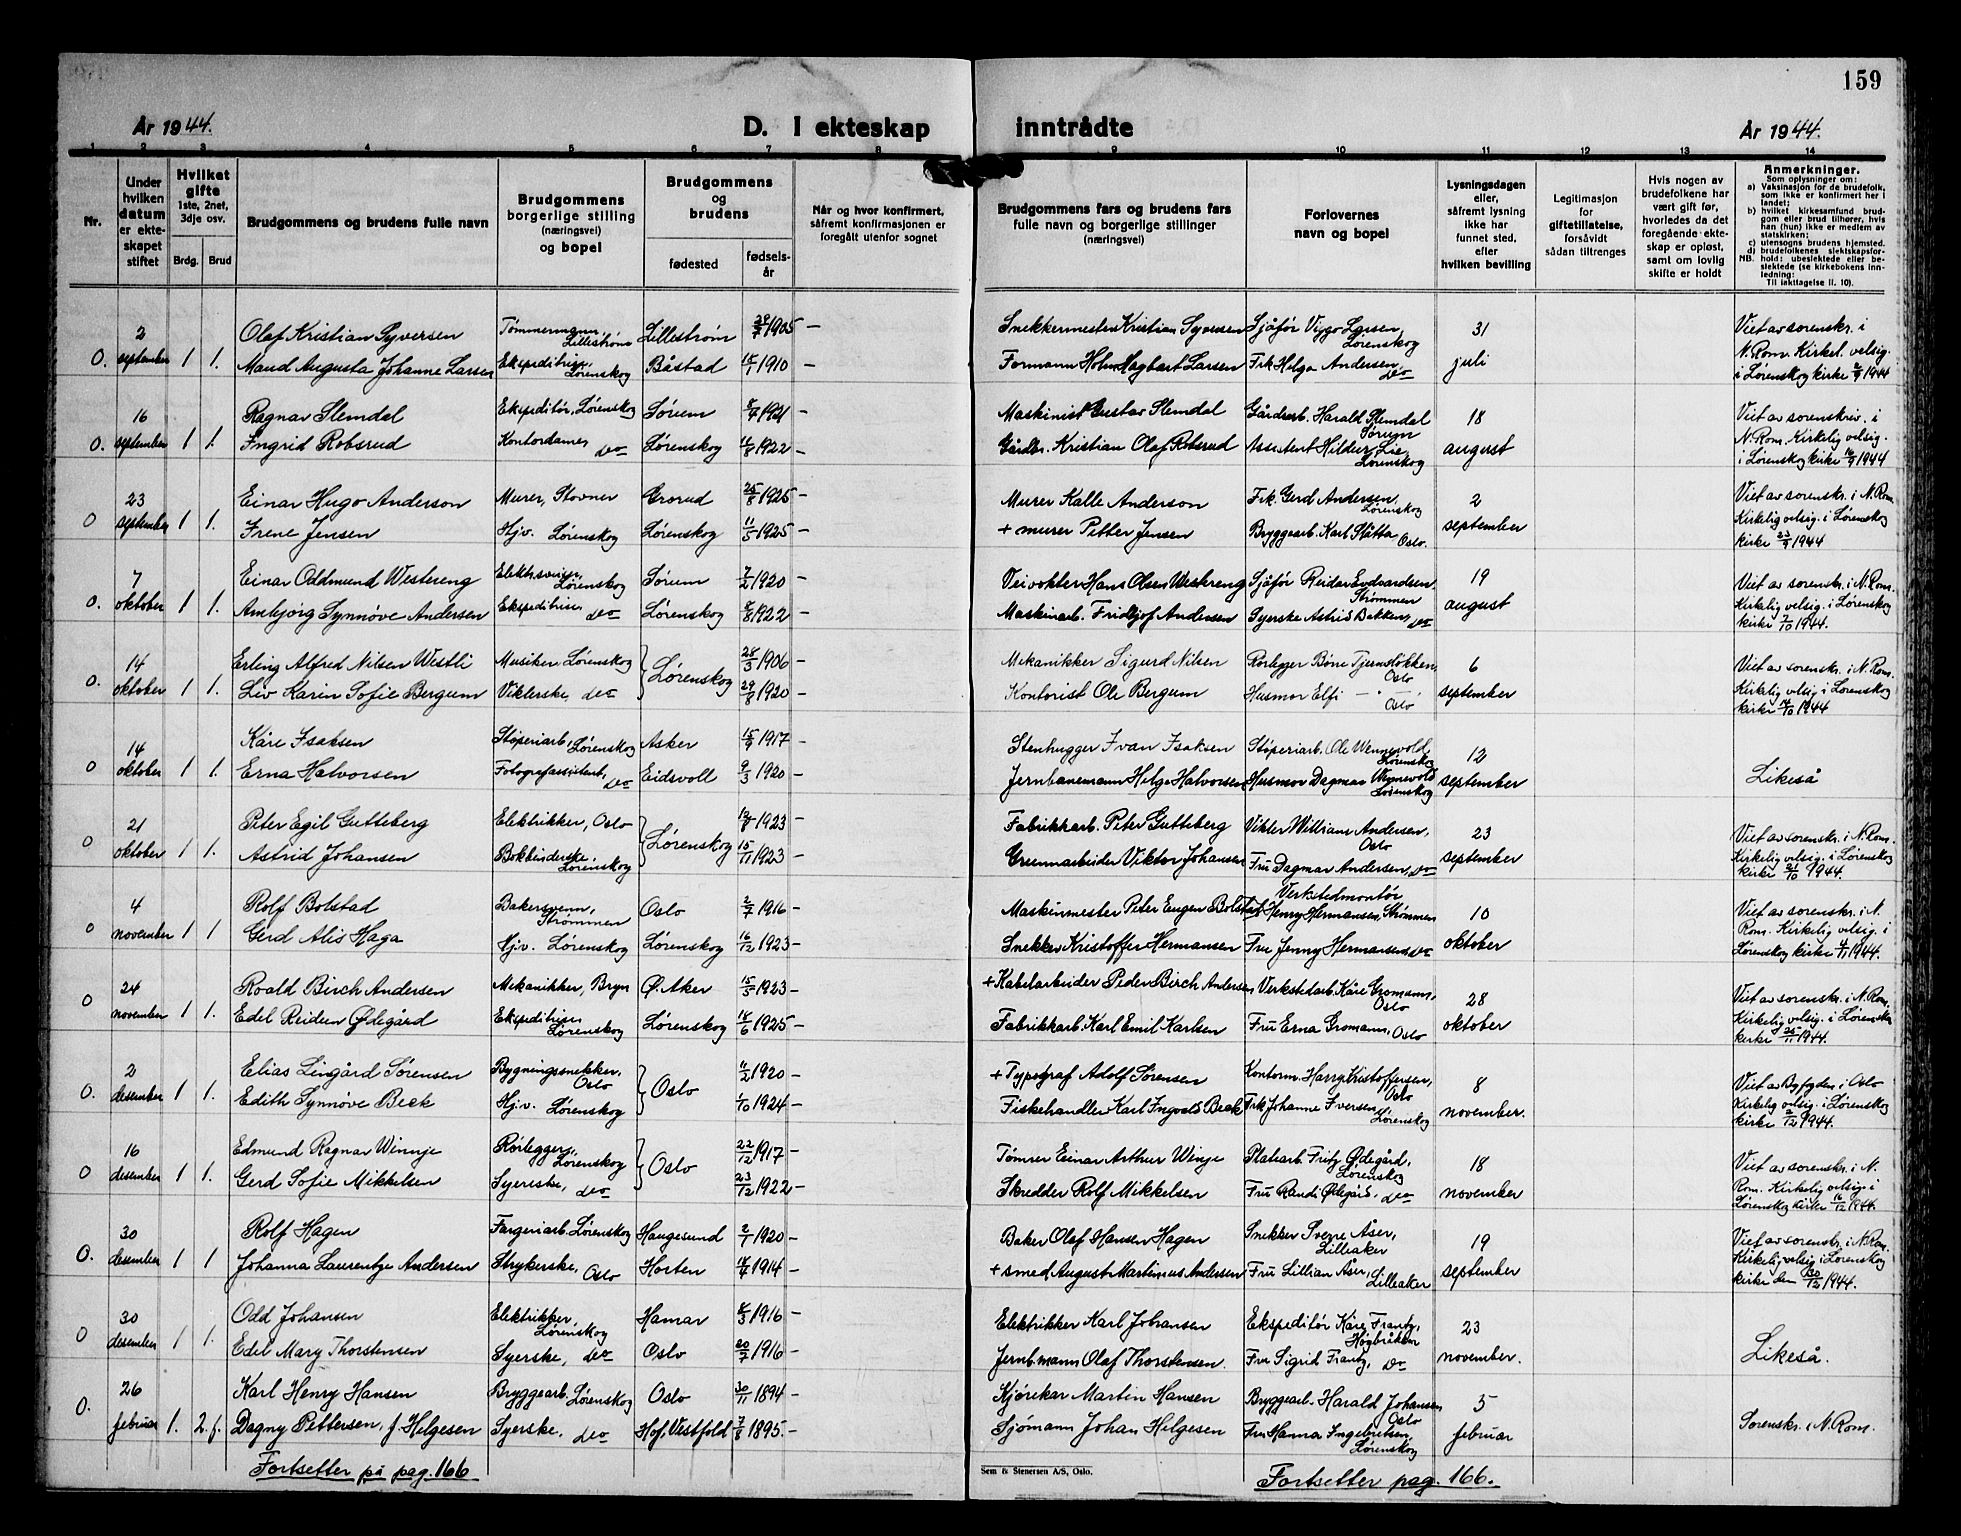 159
År 1944. D. I ekteskap inntrådte År 1944.
1 2 3 4 5 6 7 8 9 10 11 12 13 14
Nr.
Under hvilken datum er ekteskapet stiftet
Hvilket gifte 1ste, 2net, 3dje osv.
Brdg. Brud
Brudgommens og brudens fulle navn
Brudgommens borgerlige stilling (næringsvei) og bopel
Brudgommens og brudens
fødested fødselsår
Når og hvor konfirmert, såfremt konfirmasjonen er foregått utenfor sognet
Brudgommens fars og brudens fars fulle navn og borgerlige stillinger (næringsvei)
Forlovernes navn og bopel
Lysningsdagen eller, såfremt lysning ikke har funnet sted, eller hvilken bevilling
Legitimasjon for giftetillatelse, forsåvidt sådan tiltrenges
Hvis nogen av brudefolkene har vært gift før, hvorledes da det foregående ekteskap er opløst, samt om lovlig skifte er holdt
Anmerkninger.
Som oplysninger om:
a) Vaksinasjon for de brudefolk, som ikke er konfirmert her i landet;
b) hvilket kirkesamfund brudgom eller brud tilhører, hvis han (hun) ikke er medlem av statskirken;
c) utensogns brudens hjemsted.
d) brudefolkenes slektskapsforhold: ubeslektede eller beslektede (se kirkebokens innledning:
NB.
Til iakttagelse II. 10).
2 Olaf Kristian Syversen Tømmermann, Lillestrøm Lillestrøm 29/7 1905 – Snekkermester Kristian Syversen Sjåfør Viggo Larsen, Lørenskog 31 Viet av sorenskr. i
0. september 1 1. Maud Augusta Johanne Larsen Ekspeditrise, Lørenskog Båstad 15/1 1910 – Formann Holm Hagbart Larsen Frk Helga Andersen, do juli N. Rom. Kirkel. velsig. i Lørenskog kirke 2/9 1944
16 Ragnar Slemdal Ekspeditør, Lørenskog Sørum 1921 – Maskinist Gustav Slemdal Gårdsarb. Harald Slemdal Sørum 18 Viet av sorenskriv. i
0. september 1 1. Ingrid Robsrud Kontordame, do Lørenskog 16/8 1922 – Gårdbr. Kristian Olaf Robsrud Assistent Hildur Lie, Lørenskog august N. Rom. Kirkelig velsig. i Lørenskog kirke 16/9 1944
23 Einar Hugo Anderson Murer, Stovner Grorud 25/8 1925 – Murer Kalle Anderson Frk. Gerd Andersen, Lørenskog 2 Viet av sorenskr. i N. Rom.
0 september 1 1. Irene Jensen Hjv. Lørenskog Lørenskog 11/5 1925 – + murer Petter Jensen Bryggearb. Karl Slåtta Oslo. september Kirkelig velsig. i Lørenskog kirke 23/9 1944
7 Einar Oddmund Westereng Lørenskog Sørum 7/2 1920 – Veivokter Hans Olsen Westreng Sjåfør Reidar Evdvardsen, Strømmen 19 Viet av sorenskr. i N. Rom.
0. oktober 1 1. Ambjørg Synnøve Andersen Ekspeditrise, do Lørenskog 1922 – Maskinarb. Fridtjof Andersen Syerske Astrid Bakken, do august Kirkelig velsig. i Lørenskog kirke 7/10 1944.
14 Erling Alfred Nilsen Westli Musiker, Lørenskog Lørenskog 28/3 1906 – Mekanikker Sigurd Nilsen Rørlegger Tjernsløkken, Oslo 6 Viet av sorenskr. i N. Rom.
0. oktober 1 1. Liv Karin Sofie Bergum Viklerske, do 29/8 1920 – Kontorist Ole Bergum Husmor Elfi – " – Oslo september Kirkelig velsig i Lørenskog kirke 14/10 1944
14 Kåre Isaksen Støperiarb., Lørenskog Asker 15/9 1917 – Stenhugger Ivan Isaksen Støperiarb. Ole Wennevold, Lørenskog 12
0 oktober 1 1. Erna Halvorsen Fotografassistent, do Eidsvoll 9/3 1920 – Jernbanemann Helge Halvorsen Husmor Dagmar Wennevold Lørenskog september Likeså
21 Peter Egil Gutteberg Elektrikker, Oslo Lørenskog 12/8 1923 – Fabrikkarb. Peter Gutteberg Vikler William Andersen, Oslo 23 Viet av sorenskr. i N. Rom.
0 oktober 1 1. Astrid Johansen Bokbinderske, Lørenskog 15/11 1923 – Grunnarbeider Viktor Johansen Fru Dagmar Andersen, do september Kirkelig velsig. i Lørenskog kirke 21/10 1944.
4 Rolf Bolstad Bakersvenn, Strømmen Oslo 2/7 1916 – Maskinmester Peter Eugen Bolstad Verkstedmontør Henry Hermansen, Strømmen 10 Viet av sorenskr. i N.
0 november 1 1 Gerd Alis Haga Hjv. Lørenskog Lørenskog 16/12 1923 – Snekker Kristoffer Hermansen Fru Jenny Hermansen, do oktober Rom. Kirkelig velsig. i Lørenskog kirke 4/11 1944.
24 Roald Birch Andersen Mekanikker, Bryn Ø. Aker 15/5 1923 – + Kabelarbeider Peder Birch Andersen Verkstedarb. Kåre Gromann, Oslo 28 Viet av sorenskr. i N. Rom.
0 november 1 1. Edel Reidun Ødegård Ekspeditrise, Lørenskog Lørenskog 14/6 1925 – Fabrikkarb. Karl Emil Karlsen Fru Erna Gromann, Oslo oktober Kirkelig velsig. i Lørenskog kirke 25/11 1944.
2 Elias Lingård Sørensen Bygningssnekker, Oslo Oslo 11/2 1920 – + Typograf Adolf Sørensen Kontorm. Harry Kristoffersen, Oslo 8 Viet av Byfogden i Oslo
0. desember 1 1. Edith Synnøve Beck Hjv. Lørenskog 1/10 1924 – Fiskehandler Karl Ingvald Beck Frk Johanne Iversen, Lørenskog november. Kirkelig velsig. i Lørenskog kirke 2/12 1944.
16 Edmund Ragnar Winnje Rørlegger, Lørenskog Oslo 22/12 1917 – Tømrer Einar Arthur Winje Platearb. Fritz Ødegård, Lørenskog 18 Viet av sorenskr. i N.
0 desember 1 1. Gerd Sofie Mikkelsen Syerske, do 23/12 1922 – Skredder Rolf Mikkelsen Fru Randi Ødegård, do november Rom. Kirkelig velsig. i Lørenskog kirke 16/12 1944.
30 Rolf Hagen Fargeriarb. Lørenskog Haugesund 2/1 1920 – Baker Olaf Hansen Hagen Snekker Sverre Åser, Lilleaker 19 Viet av sorenskr. i N. Rom.
0. desember 1 1 Johanna Laurentze Andersen Strykerske, Oslo Horten 1914 – + smed August Martinius Andersen Fru Lillian Åser, Lilleaker september Kirkelig velsig i Lørenskog kirke den 30/12 1944.
30 Odd Johansen Elektrikker, Lørenskog Hamar 1916 – Elektrikker Karl Johansen Ekspeditør Kåre Frantz, Høybråten 23
0 desember 1 1. Edel Mary Thorstensen Syerske, do Oslo 20/7 1916 – Jernb.mann Olaf Thorstensen. Fru Sigrid Frantz, do november. Likeså.
26 Karl Henry Hansen Bryggearb. Lørenskog Oslo 30/11 1894 – Kjørekar Martin Hansen Bryggearb. Harald Johansen Oslo 5
0. februar 1. 2. f. Dagny Pettersen, f. Helgesen Syerske, do Hof, Vestfold 7/8 1895. – Sjømann Johan Helgesen Fru Hanna Ingebretsen, Lørenskog februar Sorenskr. i N. Rom.
Fortsetter på pag. 166
Sem & Stenersen A/S, Oslo.
Fortsetter pag. 166.